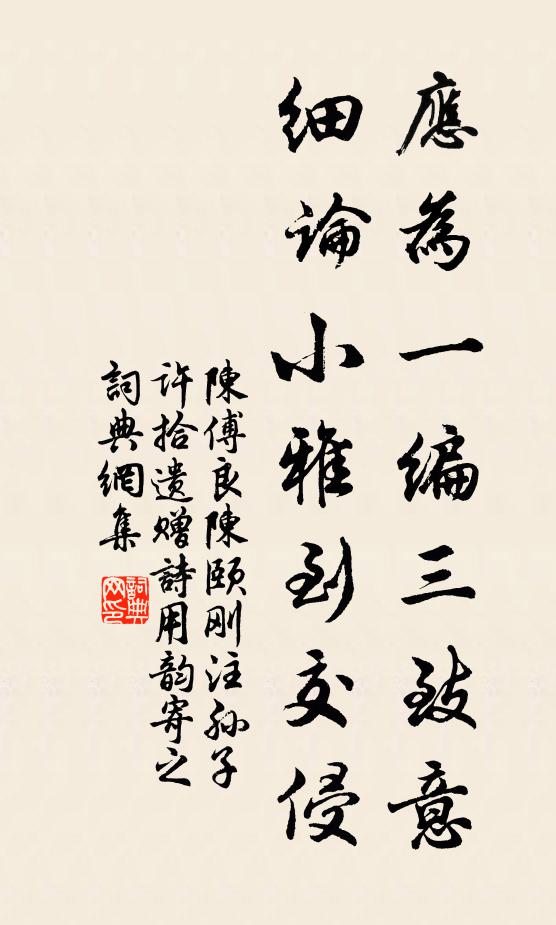 應為一編三致意
細論小雅到交侵
陳傅良陳頤剛注孙子
许拾遗赠詩用韵寄之
詞典網集
詞典网印